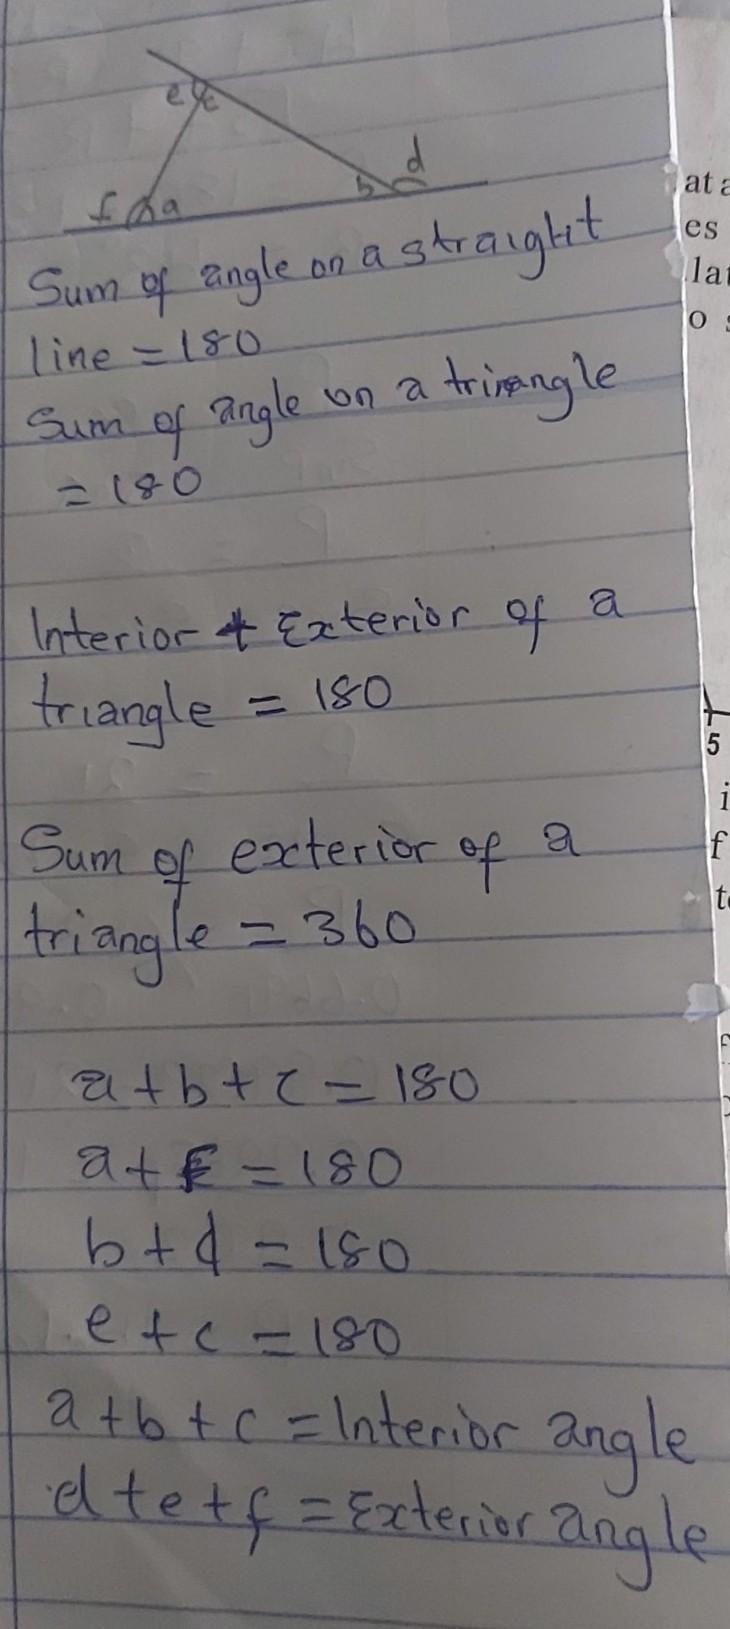 e c
d
f a b
Sum of angle on a straight
line = 180
Sum of angle on a triangle
= 180
Interior + Exterior of a
triangle = 180
Sum of exterior of a
triangle = 360
a + b + c = 180
a + F = 180
b + d = 180
e + c = 180
a + b + c = Interior angle
d + e + f = Exterior angle
at a
es
lat
o s
5
i
f